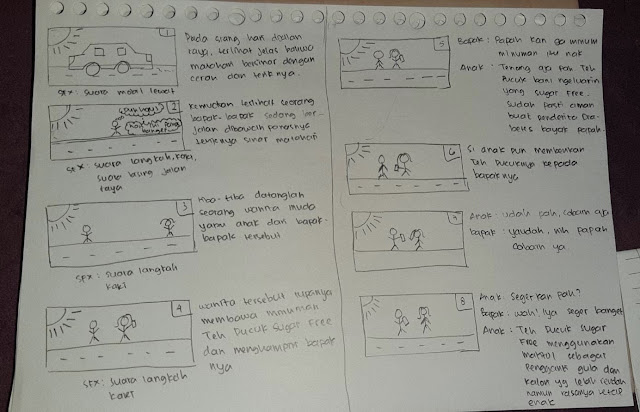 1
Pada siang hari dijalan
raya, terlihat jelas bahwa
matahari bersinar dengan
cerah dan teriknya.
SFX : Suara mobil lewat
2
Kemudian terlihat seorang
bapak-bapak sedang ber-
jalan dibawah panasnya
teriknya sinar matahari
SFX : Suara langkah kaki,
suara jalan
raya
3
Tiba-tiba datanglah
seorang wanita muda
yaitu anak dari bapak-
bapak tersebut
SFX : Suara langkah
kaki
4
wanita tersebut rupanya
membawa minuman
Teh Pucuk Sugar Free
dan menghampiri bapak
nya
SFX : Suara langkah
kaki
5
Bapak : Papah kan ga minum
minuman itu nak
Anak : Tenang aja pah Teh
Pucuk baru ngeluarin
yang Sugar Free.
Sudah pasti aman
buat penderita Dia-
betes kayak papah.
6
Si anak pun memberikan
Teh Pucuknya kepada
bapaknya
7
Anak : udain pah, cobain aja
bapak : yaudah, nih papah
cobain ya.
8
Anak : Segar kan pah?
Bapak : wah! iya seger banget
Anak : Teh Pucuk Sugar
Free menggunakan
sebagai
pengganti gula dan
kalori yg lebih rendah
namun rasanya tetap
enak